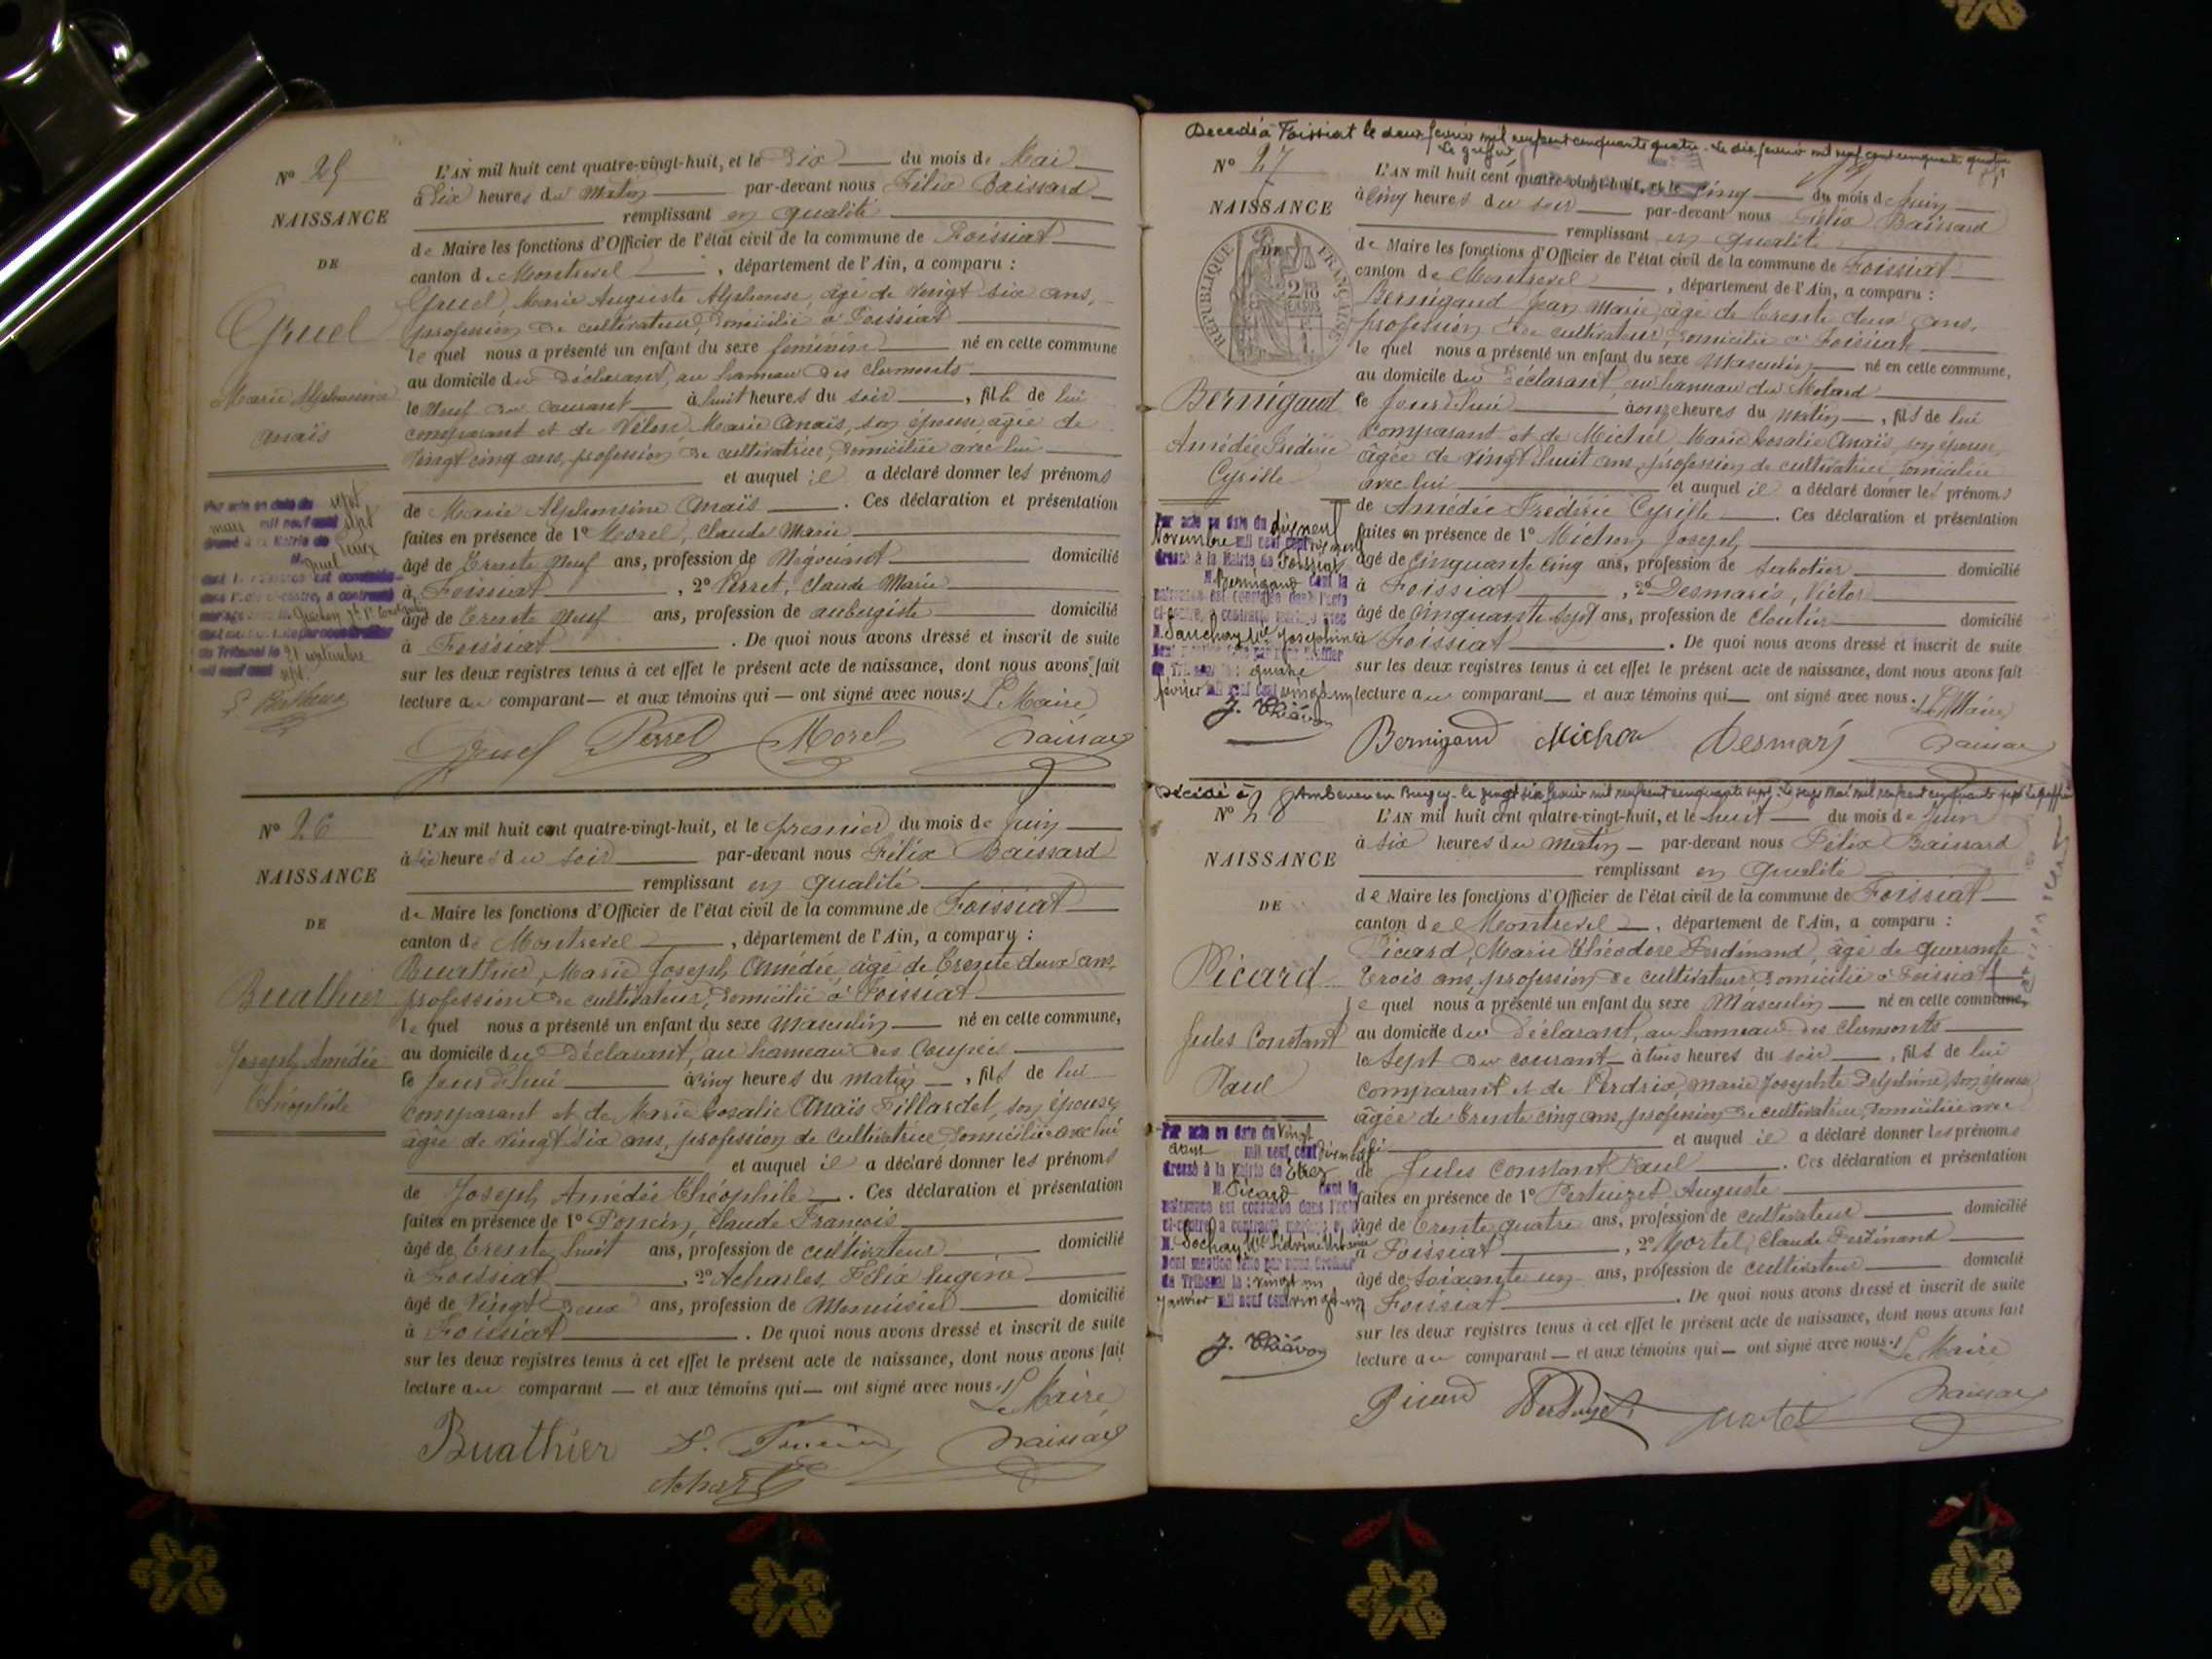 N° 25
NAISSANCE
DE
Gruel
Marie Alphonsine
Anaïs
L'AN mil huit cent quatre-vingt-huit, et le dix du mois de Mai
à six heures du Matin par-devant nous Félix Baissard
remplissant en qualité
de Maire les fonctions d'Officier de l'état civil de la commune de Foissiat
canton de Montrevel, département de l'Ain, a comparu :
Gruel, Marie Auguste Alphonse, âgé de vingt six ans,
profession de cultivateur, domicilié à Foissiat
le quel nous a présenté un enfant du sexe féminin né en cette commune
au domicile du déclarant, au hameau des Clermonts
le neuf du courant à huit heures du soir, fille de lui
comparant et de Marie Anaïs, son épouse âgée de
vingt cinq ans, profession de cultivatrice, domiciliée avec lui
et auquel il a déclaré donner les prénoms
de Marie Alphonsine Anaïs. Ces déclaration et présentation
faites en présence de 1° Morel, Claude Marie
âgé de trente neuf ans, profession de Négociant domicilié
à Foissiat, 2° Perret, Claude Marie
âgé de trente neuf ans, profession de aubergiste domicilié
à Foissiat. De quoi nous avons dressé et inscrit de suite
sur les deux registres tenus à cet effet le présent acte de naissance, dont nous avons fait
lecture au comparant et aux témoins qui ont signé avec nous. Le Maire
Gruel Perret Morel Baissard
Par acte en date du sept
mars mil neuf cent sept
dressé à la Mairie de
Gruel
du Tribunal le 21 septembre
mil neuf cent sept
N° 26
NAISSANCE
DE
Buathier
Joseph Amédée
Théophile
L'AN mil huit cent quatre-vingt-huit, et le premier du mois de Juin
à six heures du soir par-devant nous Félix Baissard
remplissant en qualité
de Maire les fonctions d'Officier de l'état civil de la commune de Foissiat
canton de Montrevel, département de l'Ain, a comparu :
Buathier, Marie Joseph Amédée, âgé de trente deux ans,
profession de cultivateur, domicilié à Foissiat
le quel nous a présenté un enfant du sexe Masculin né en cette commune,
au domicile du Déclarant, au hameau des
le jour d'hui à cinq heures du matin, fils de lui
comparant et de Marie Rosalie Anaïs Pillardet, son épouse,
âgée de vingt six ans, profession de cultivatrice, domiciliée avec lui
et auquel il a déclaré donner les prénoms
de Joseph Amédée Théophile. Ces déclaration et présentation
faites en présence de 1° Poncin, Claude François
âgé de trente huit ans, profession de cultivateur domicilié
à Foissiat, 2° Acharles, Félix Eugène
âgé de vingt deux ans, profession de Menuisier domicilié
à Foissiat. De quoi nous avons dressé et inscrit de suite
sur les deux registres tenus à cet effet le présent acte de naissance, dont nous avons fait
lecture au comparant et aux témoins qui ont signé avec nous. Le Maire
Buathier Baissard
Décédé à Foissiat le deux février mil neuf cent cinquante quatre. Le dix février mil neuf cent cinquante quatre
Le greffier
N° 27
NAISSANCE
DE
RÉPUBLIQUE FRANÇAISE
Bernigaud
Amédée Frédéric
Cyrille
L'AN mil huit cent quatre-vingt-huit, et le cinq du mois de Juin
à cinq heures du soir par-devant nous Félix Baissard
remplissant en qualité
de Maire les fonctions d'Officier de l'état civil de la commune de Foissiat
canton de Montrevel, département de l'Ain, a comparu :
Bernigaud Jean Marie, âgé de trente deux ans,
profession de cultivateur, domicilié à Foissiat
le quel nous a présenté un enfant du sexe Masculin né en cette commune,
au domicile du déclarant, au hameau du Molard
le jour d'hui à onze heures du matin, fils de lui
comparant et de Michel Marie Rosalie Anaïs, son épouse,
âgée de vingt huit ans, profession de cultivatrice domiciliée
avec lui et auquel il a déclaré donner les prénoms
de Amédée Frédéric Cyrille. Ces déclaration et présentation
faites en présence de 1° Michon, Joseph
âgé de cinquante cinq ans, profession de sabotier domicilié
à Foissiat, 2° Desmaris, Victor
âgé de cinquante sept ans, profession de cloutier domicilié
à Foissiat. De quoi nous avons dressé et inscrit de suite
sur les deux registres tenus à cet effet le présent acte de naissance, dont nous avons fait
lecture au comparant et aux témoins qui ont signé avec nous. Le Maire
Bernigaud Michon Desmaris Baissard
Par acte en date du dix neuf
Novembre mil neuf cent
dressé à la Mairie de Foissiat
M. Bernigaud dont la
naissance est constatée dans l'acte
ci-contre, a contracté mariage avec
Joséphine
Dont mention faite par nous Greffier
du Tribunal le quatre
février mil neuf cent vingt un
N° 28
NAISSANCE
DE
Picard
Jules Constant
Paul
L'AN mil huit cent quatre-vingt-huit, et le huit du mois de Juin
à six heures du matin par-devant nous Félix Baissard
remplissant en qualité
de Maire les fonctions d'Officier de l'état civil de la commune de Foissiat
canton de Montrevel, département de l'Ain, a comparu :
Picard, Marie Théodore Ferdinand, âgé de quarante
trois ans, profession de cultivateur, domicilié à Foissiat
le quel nous a présenté un enfant du sexe Masculin né en cette commune,
au domicile du déclarant, au hameau des Clermonts
le sept du courant à trois heures du soir, fils de lui
comparant et de Perdrix, Marie Josephte Delphine, son épouse
âgée de trente cinq ans, profession de cultivatrice, domiciliée avec
lui et auquel il a déclaré donner les prénoms
de Jules Constant Paul. Ces déclaration et présentation
faites en présence de 1° Pertuizet, Auguste
âgé de trente quatre ans, profession de cultivateur domicilié
à Foissiat, 2° Mortel, Claude Ferdinand
âgé de soixante un ans, profession de cultivateur domicilié
à Foissiat. De quoi nous avons dressé et inscrit de suite
sur les deux registres tenus à cet effet le présent acte de naissance, dont nous avons fait
lecture au comparant et aux témoins qui ont signé avec nous. Le Maire
Picard Baissard
Par acte en date du vingt
août mil neuf cent
dressé à la Mairie de Etrez
M. Picard dont la
naissance est constatée dans l'acte
ci-contre, a contracté mariage avec
M. Sochay
Dont mention faite par nous Greffier
du Tribunal le vingt un
janvier mil neuf cent vingt un